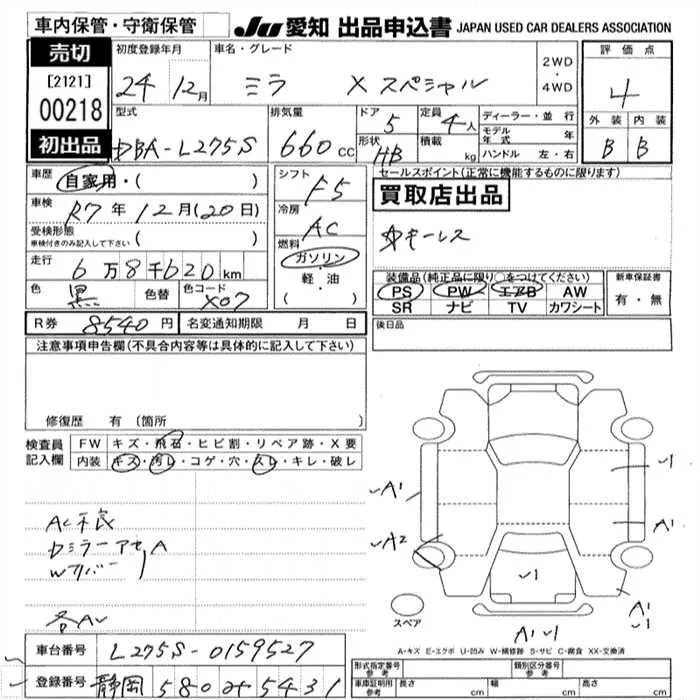 車内保管・守衛保管
JU 愛知 出品申込書 JAPAN USED CAR DEALERS ASSOCIATION
売切
[2121]
00218
初出品
初度登録年月
24 12月
車名・グレード
ミラ Xスペシャル
2WD
・
4WD
評価点
4
外装 内装
B B
型式
DBA-L275S
排気量
660 cc
ドア
5
形状
HB
定員
4人
積載
kg
ディーラー・並行
モデル年式 年
ハンドル 左・右
車歴
自家用・( )
車検
R7年12月(20日)
受検形態
車検付きのみ記入して下さい ( )
走行
6万8千620km
色
黒
色替
色コード
X07
シフト
F5
冷房
AC
燃料
ガソリン
・
軽・油
( )
セールスポイント(正常に機能するものに限ります)
買取店出品
キーレス
装備品(純正品に限り○をつけてください)
PS PW エアB AW
SR ナビ TV カワシート
新車保証書
有・無
R券 8540円
名変通知期限 月 日
後日品
注意事項申告欄(不具合内容等は具体的に記入して下さい)
修復歴 有 (箇所
検査員
記入欄
FW キズ・飛石・ヒビ割・リペア跡・X要
内装 キズ・汚レ・コゲ・穴・スレ・キレ・破レ
AC不良
A
A1
A2
1
A1
1
A1
1
A1 1
スペア
A-キズ E-エクボ U-凹み W-補修跡 S-サビ C-腐食 XX-交換済
車台番号 L275S-0159527
登録番号 静岡 580 そ 5431
形式指定番号
参考
類別区分番号
参考
車庫証明用
参考
長さ cm 幅 cm 高さ cm